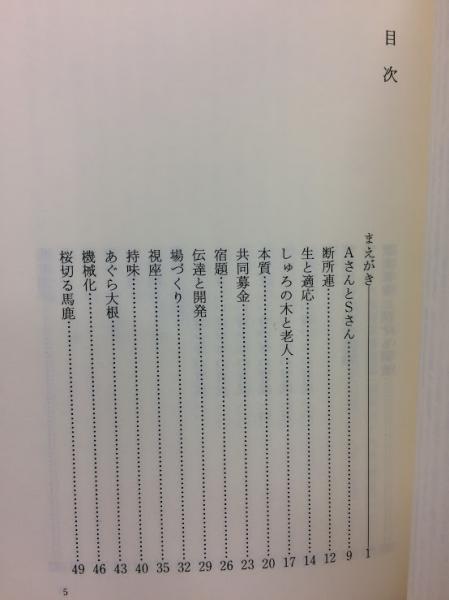 目次
まえがき 1
AさんとSさん 9
断所連 12
生と適応 14
しゅろの木と老人 17
本質 20
共同募金 23
宿題 26
伝達と開発 29
場づくり 32
視座 35
持味 40
あぐら大根 43
機械化 46
桜切る馬鹿 49
5